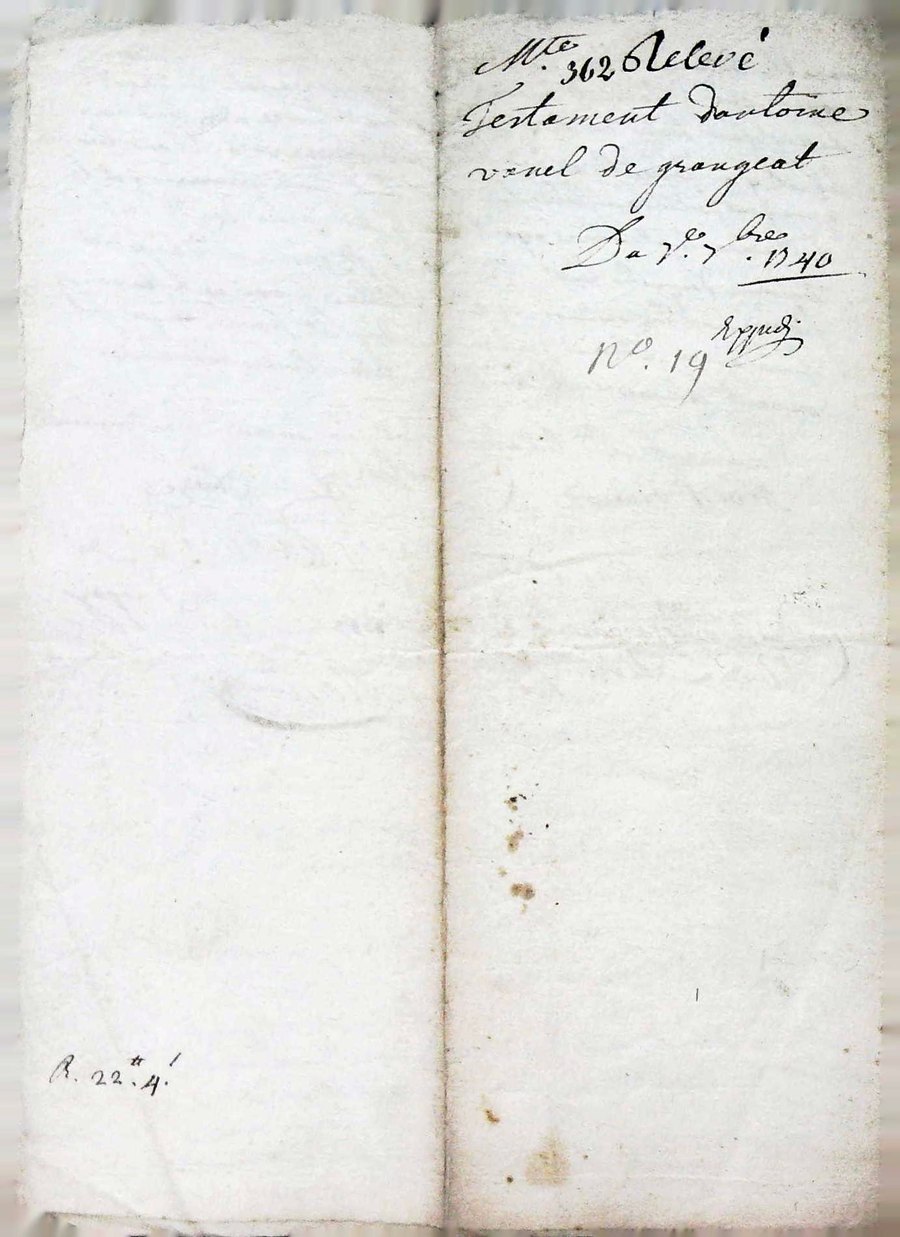 Mte. 362 Relevé
Testament dantoine
vanel de grangeat
Du 7e. 7bre. 1740
Expedi.
no. 19
R. 22.tt 4.s